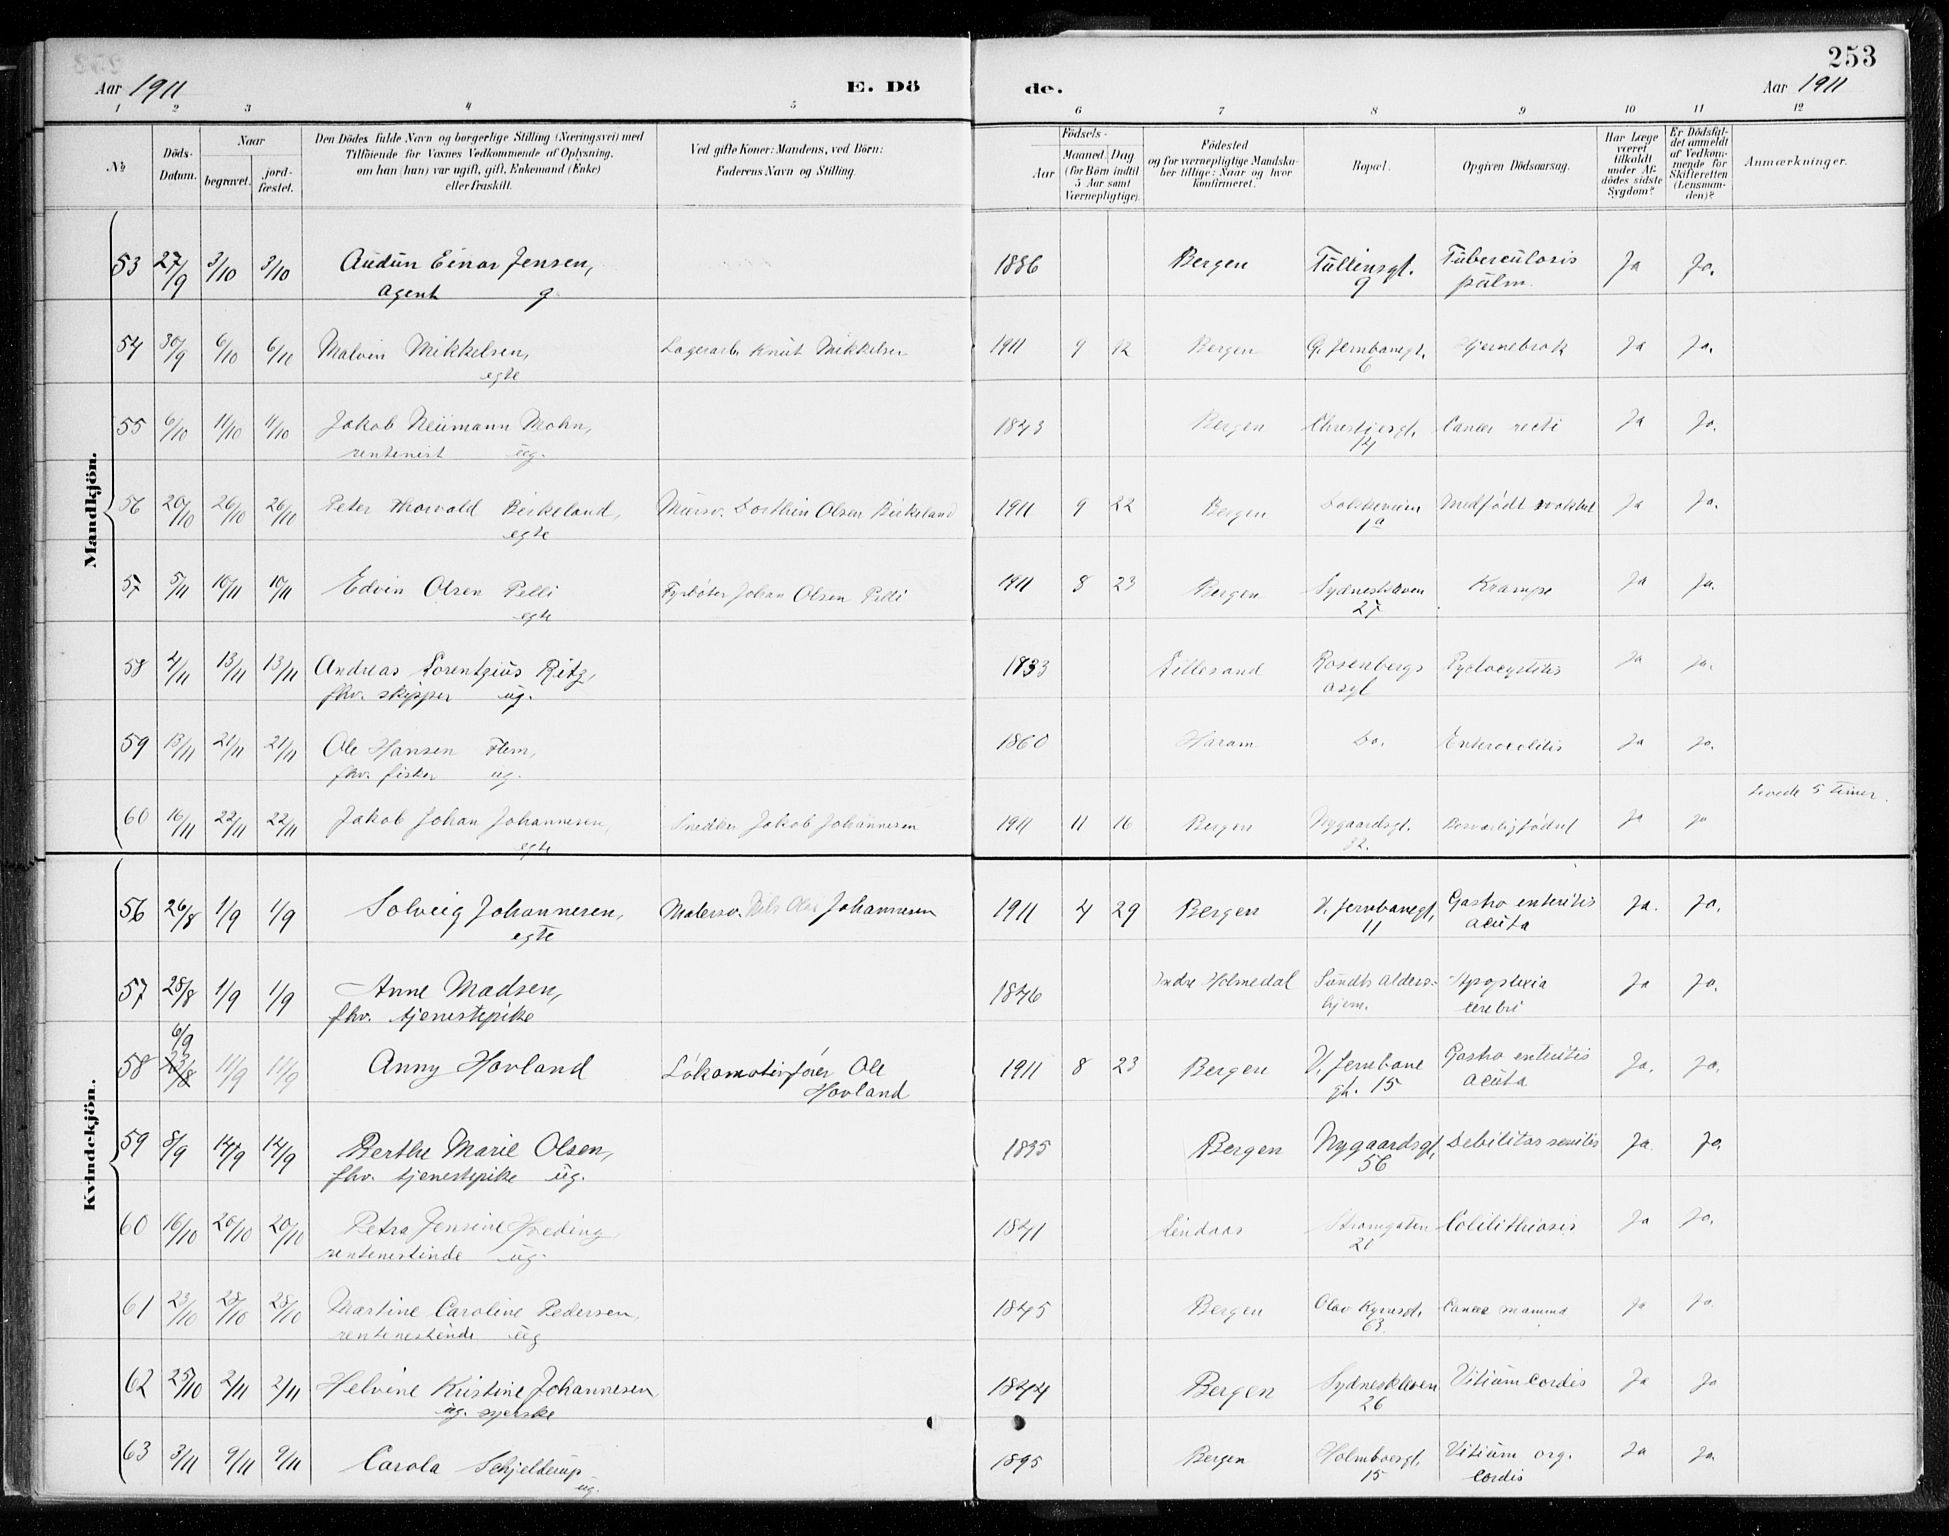 253
Aar 1911
E. Dö
de.
Aar 1911
1 2 3 4 5 6 7 8 9 10 11 12
No
Döds-Datum.
Naar
begravet.
jord-fæstet.
Den Dödes fulde Navn og borgerlige Stilling (Næringsvei) med
Tilföiende for Voxnes Vedkommende af Oplysning,
om han (hun) var ugift, gift, Enkemand (Enke)
eller fraskilt.
Ved gifte Koner: Mandens, ved Börn:
Faderens Navn og Stilling.
Födsels-
Aar
Maaned. Dag
(for Börn indtil
5 Aar samt
Værnepligtige).
Födested
og for værnepligtige Mandska-
ber tillige: Naar og hvor
konfirmeret.
Bopæl.
Opgiven Dödsaarsag.
Har Læge
været
tilkaldt
under Af-
dödes sidste
Sygdom?
Er Dödsfal-
det anmeldt
af Vedkom-
mende for
Skifteretten
(Lensman-
den)?
Anmærkninger.
Mandkjön.
53 27/9 3/10 3/10 Audun Einar Jensen, 1886 Bergen Tullinsgt. Tuberculosis Ja Ja.
agent g. 9 pulm.
54 30/9 6/10 6/10 Malvin Mikkelsen, Lagerarb. Knut Mikkelsen 1911 9 12 Bergen G. Jernbanegt. Hjernebrok Ja Ja.
egte 6
55 6/10 11/10 11/10 Jakob Neumann Mohn, 1843 Bergen Christiesgt. Cancer recti Ja Ja.
rentenist ug. 14
56 20/10 26/10 26/10 Peter Thorvald Birkeland, Mursv. Dorthin Olsen Birkeland 1911 9 22 Bergen Medfödt svakhet Ja Ja.
egte 1a
57 5/11 10/11 10/11 Edvin Olsen Pelli Fyrböter Johan Olsen Pelli 1911 8 23 Bergen Sydneskleven Krampe Ja Ja.
egte 27
58 4/11 13/11 13/11 Andreas Lorentzius Ritz, 1833 Lillesand Rosenbergs Pyelocystitis Ja Ja.
fhv. skipper ug. asyl
59 13/11 21/11 21/11 Ole Hansen Flem, 1860 Haram Do. Enterocolitis Ja Ja.
fhv. fisker ug.
Levede 5 timer.
60 16/11 22/11 22/11 Jakob Johan Johannesen, Snedker Jakob Johannesen 1911 11 16 Bergen Nygaardsgt. Ja Ja
egte 32.
Kvindekjön.
56 26/8 1/9 1/9 Solveig Johannesen, Malersv. Nils Olai Johannesen 1911 4 29 Bergen V. Jernbanegt. Gastro enteritis Ja. Ja.
egte 11 acuta
57 28/8 1/9 1/9 Anne Madsen, 1846 Indre Holmedal Sundts alders- Apoplexia Ja Ja.
fhv. tjenestepike hjem. cerebri
6/9
58 23/8 11/9 11/9 Anny Hovland Lokomotivförer Ole 1911 8 23 Bergen V. Jernbane Gastro enteritis Ja. Ja.
Hovland gt. 15 acuta
59 8/9 14/9 14/9 Berthe Marie Olsen, 1835 Bergen Nygaardsgt. Debilitas senilis Ja. Ja.
fhv. tjenestepike ug. 56
60 16/10 20/10 20/10 Petra Jensine Hveding, 1841 Lindaas Strømgaten Colilithiasis Ja Ja.
rentenistinde ug. 21
61 23/10 28/10 28/10 Martine Caroline Pedersen, 1845 Bergen Olav Kyrresgt. Cancer mamma Ja Ja.
rentenistinde ug 63.
62 25/10 2/11 2/11 Helvine Kristine Johannesen 1844 Bergen Sydneskleven Vitium cordis Ja Ja
ug. syerske 26
63 3/11 9/11 9/11 Carola Schjelderup 1895 Bergen Holmboesgt. Vitium org. Ja Ja.
ug. 15 cordis